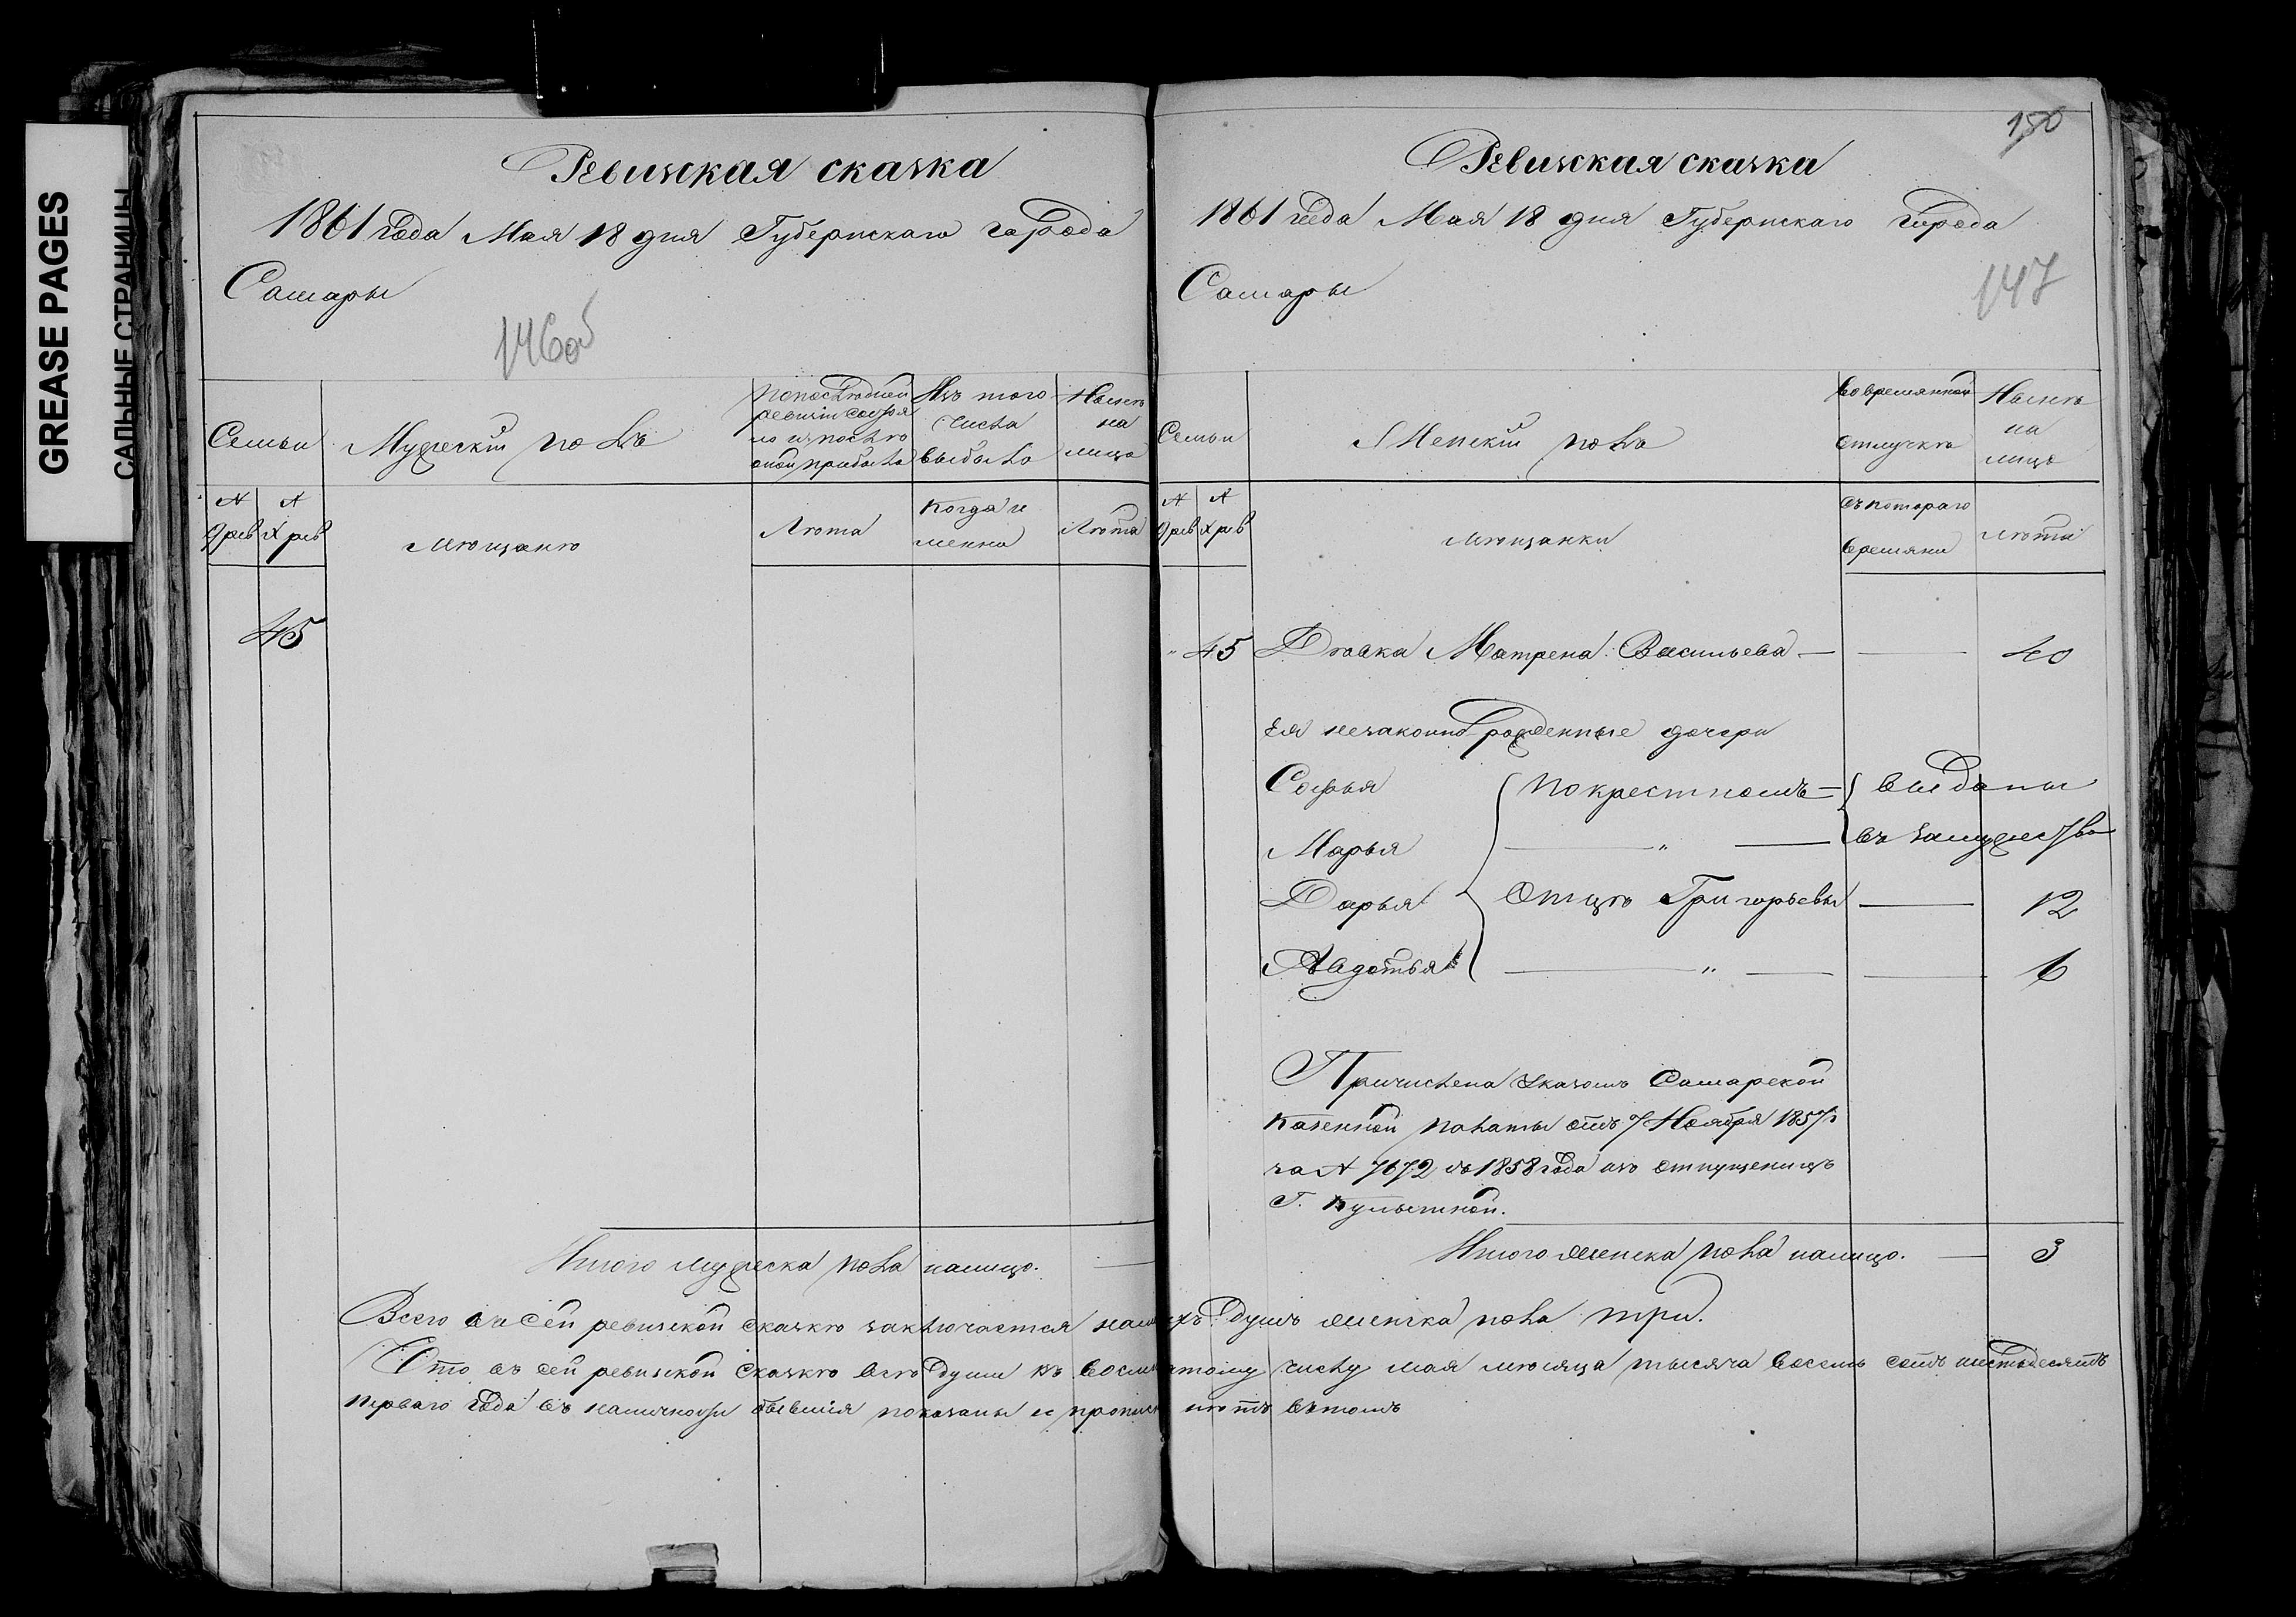 GREASE PAGES
САЛЬНЫЕ СТРАНИЦЫ
Ревизская сказка
1861 года Мая 18 дня Губернскаго города
Самары
146об
Семьи
Мужескій полъ
По последней
ревизіи состоя
ло и после
оной прибыло
Изъ того
числа
выбыло
Ныне
на
лицо
№ №
9 рев X рев
мещане
Лета
когда и
менно
Лета
45
Итого мужеска пола налицо. —
150
Ревизская сказка
1861 года Мая 18 дня Губернскаго города
Самары
147
Семьи
Женскій полъ
Во временной
отлучке
Ныне
на
лицо
№ №
9 рев X рев
мещанки
съ котораго
времяни
лета
45 Девка Матрена Васильева — — 40
Ея незаконно рожденные дочери
Софья по крестномъ — выданы
Марья — " — въ замужество
Дарья Отце Григорьевы — 12
Авдотья — " — — 6
Причислена Указомъ Самарской
Казенной палаты отъ 7 Ноября 1857 г
за № 7672 съ 1858 года изъ отпущеницъ
Г.
Итого женска пола налицо. — 3
Всего въ сей ревизской сказке заключается душъ женска пола три.
Что въ сей ревизской сказке все души къ восемнатому числу мая месяца тысяча восемь сотъ шестьдесятъ
перваго года въ наличности бывшія показаны и нетъ въ томъ